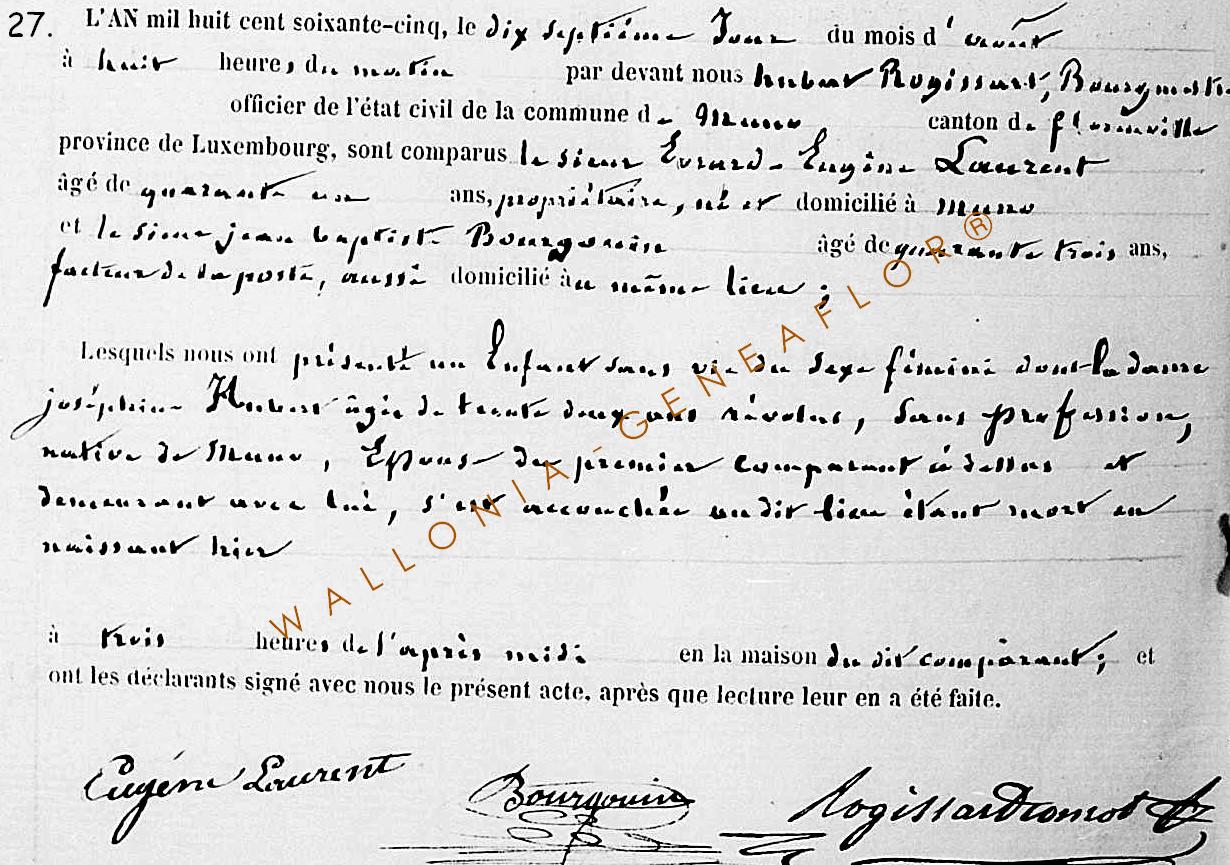 27. L'AN mil huit cent soixante-cinq, le dix septième Jour du mois d'août
à huit heures du matin par devant nous hubert Rogissart, Bourgmestre
officier de l'état civil de la commune de Muno canton de florenville
province de Luxembourg, sont comparus le sieur Evrard-Eugène Laurent
âgé de quarante un ans, propriétaire, né et domicilié à muno
et le sieur jean baptiste Bourgouin âgé de quarante trois ans,
facteur de la poste, aussi domicilié au même lieu ;
Lesquels nous ont présenté un Enfant sans vie du sexe féminin dont la dame
joséphine Hubert âgée de trente deux ans révolus, sans profession,
native de Muno, Epouse du premier comparant à dessus et
demeurant avec lui, s'est accouchée au dit lieu étant mort en
naissant hier
à trois heures de l'après midi en la maison du dit comparant ; et
ont les déclarants signé avec nous le présent acte, après que lecture leur en a été faite.
Eugène Laurent Bourgouin
WALLONIA-GENEAFLOR®